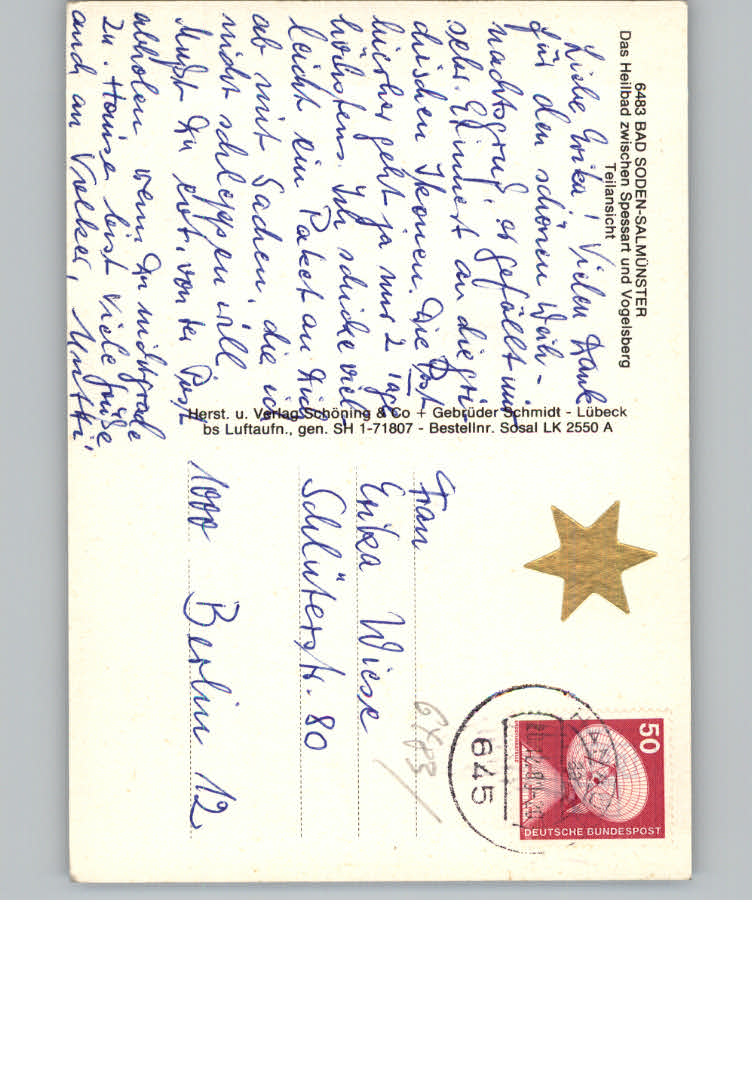 6483 BAD SODEN-SALMÜNSTER
Das Heilbad zwischen Spessart und Vogelsberg
Teilansicht
Liebe Erika! Vielen Dank
für den schönen Weih-
nachtsgruß, er gefällt mir
sehr. Erinnert an die gri
chischen Ikonen. Die Post
hierher geht ja nur 2 Tage
höchstens. Ich schicke viel-
leicht ein Paket an Dich
ab mit Sachen, die ich
nicht schleppen will.
Mußt Du evt. von der Post
abholen, wenn Du nicht grade
zu Hause bist. Viele Grüße
auch an Volker, Mutti
Herst. u. Verlag Schöning & Co + Gebrüder Schmidt - Lübeck
bs Luftaufn., gen. SH 1-71807 - Bestellnr. Sosal LK 2550 A
Frau
Erika Wiese
Schlüterstr. 80
1000 Berlin 12
6483
645
50
DEUTSCHE BUNDESPOST